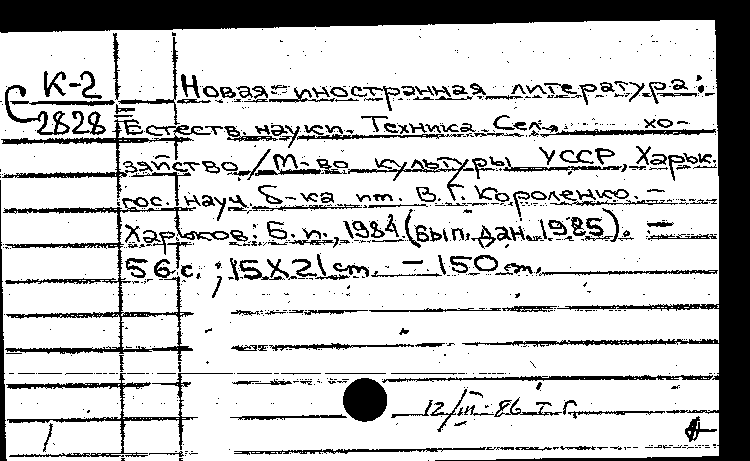 К-2
С 2828
Новая иностранная литература:
Естеств. науки. Техника. Сел. хо-
зяйство / М-во культуры УССР, Харьк.
гос. науч. б-ка им. В. Г. Короленко. –
Харьков: Б. и., 1984 (вып. дан. 1985). –
56 с.; 15X21 cm. – 150 m.
12/III-86 т. г.